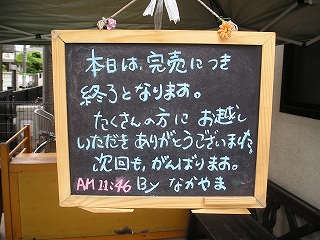 本日は、完売につき
終了となります。
たくさんの方に お越し
いただき ありがとうございました。
次回も、がんばります。
AM 11:46 By なかやま